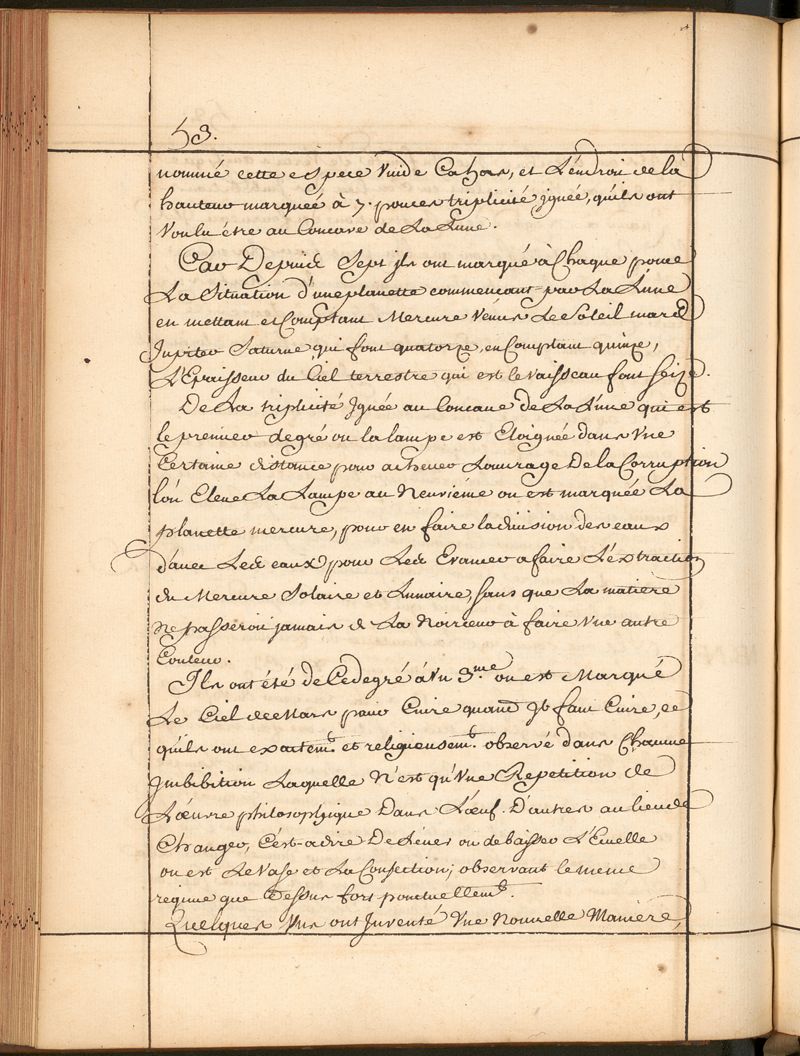 53.
nommé cette espece vuide Cahos, et L'endroit de la
hauteur marquée à 7. pouces triplicité ignée, qu'ils ont
voulu être au Concave de La Lune.
Car Depuis Sept ils ont marqué à Chaque pouce
La Situation d'une planette commencant par La Lune
en mettant et Comptant Mercure Venus Le Soleil mars
Jupiter Saturne qui font quatorze, en Comptant quinze,
L'Epaisseur du Ciel terrestre qui est le vaisseau font seize.
De La triplicité Ignée au Concave de La Lune qui est
le premier degré ou la lampe est Eloignée dans Une
Certaine distance pour achever L'ouvrage De la Corruption
l'on Eleve La Lampe au Neuviéme ou est marquée La
planette mercure, pour en faire la division des eaux
d'avec Les eaux pour Les a faire L'extraction
du Mercure Solaire et Lunaire, sans que La matière
Ne passeroit jamais de La Noirceur à faire Une autre
Couleur.
Ils ont été de Ce degré à Un 3.me ou est Marqué
Le Ciel de Mars pour Cuire quand il faut Cuire, ce
qu'ils ont exactemt. et religieusemt. observé dans Chacune
Imbibition Laquelle N'est qu'Une Repetition de
L'œuvre philosophique Dans L'œuf. D'autres au lieu de
Changer, C'est-a dire De Lever ou de baisser L'Ecuelle
ou est Le Vase et La Confection; observant le meme
regime que Dessus fort ponctuellemt.
Quelques Uns ont Inventé Une Nouvelle Maniere,